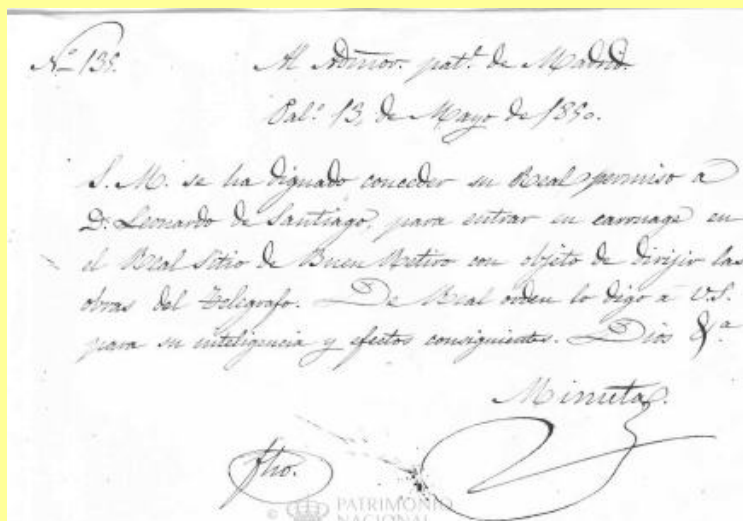 Nº 135. Al Admor. patl. de Madrid.
Palº 13, de Mayo de 1850.
S. M. se ha dignado conceder su Real permiso a
Dn. Leonardo de Santiago, para entrar en carruage en
el Real Sitio de Buen Retiro con objeto de dirijir las
obras del Telegrafo. De Real orden lo digo a V.S.
para su inteligencia y efectos consiguientes. Dios &a.
Minuta.
fho.
© PATRIMONIO
NACIONAL